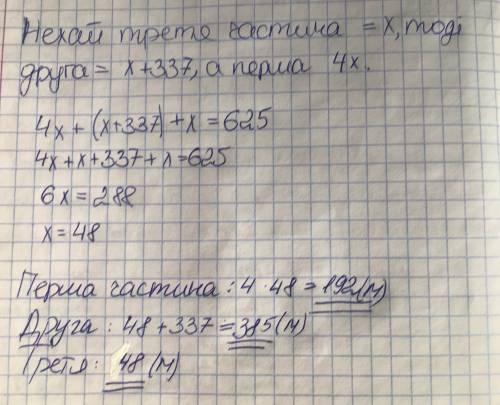 Нехай третя частина = x, тоді
друга = x+337, а перша 4x.
4x + (x+337) + x = 625
4x+x+337+x=625
6x = 288
x = 48
Перша частина: 4 · 48 = 192 (м)
Друга : 48 + 337 = 385 (м)
Третя: 48 (м)